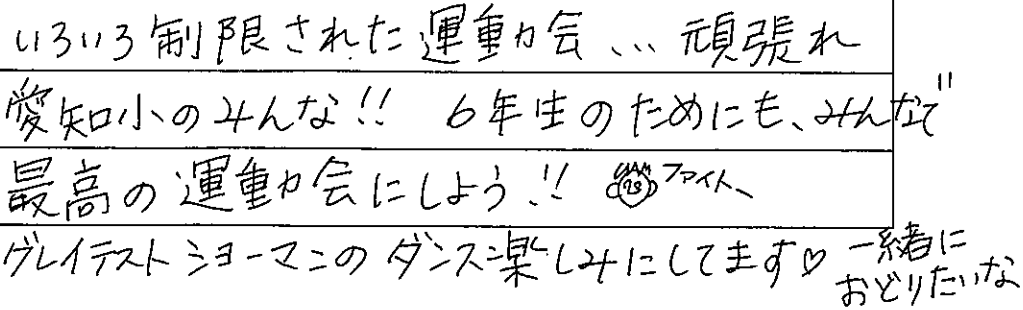 いろいろ制限された運動会、… 頑張れ
愛知小のみんな!! 6年生のためにも、みんなで
最高の運動会にしよう!! ファイト、
グレイテストショーマンのダンス楽しみにしてます♡ 一緒に
おどりたいな